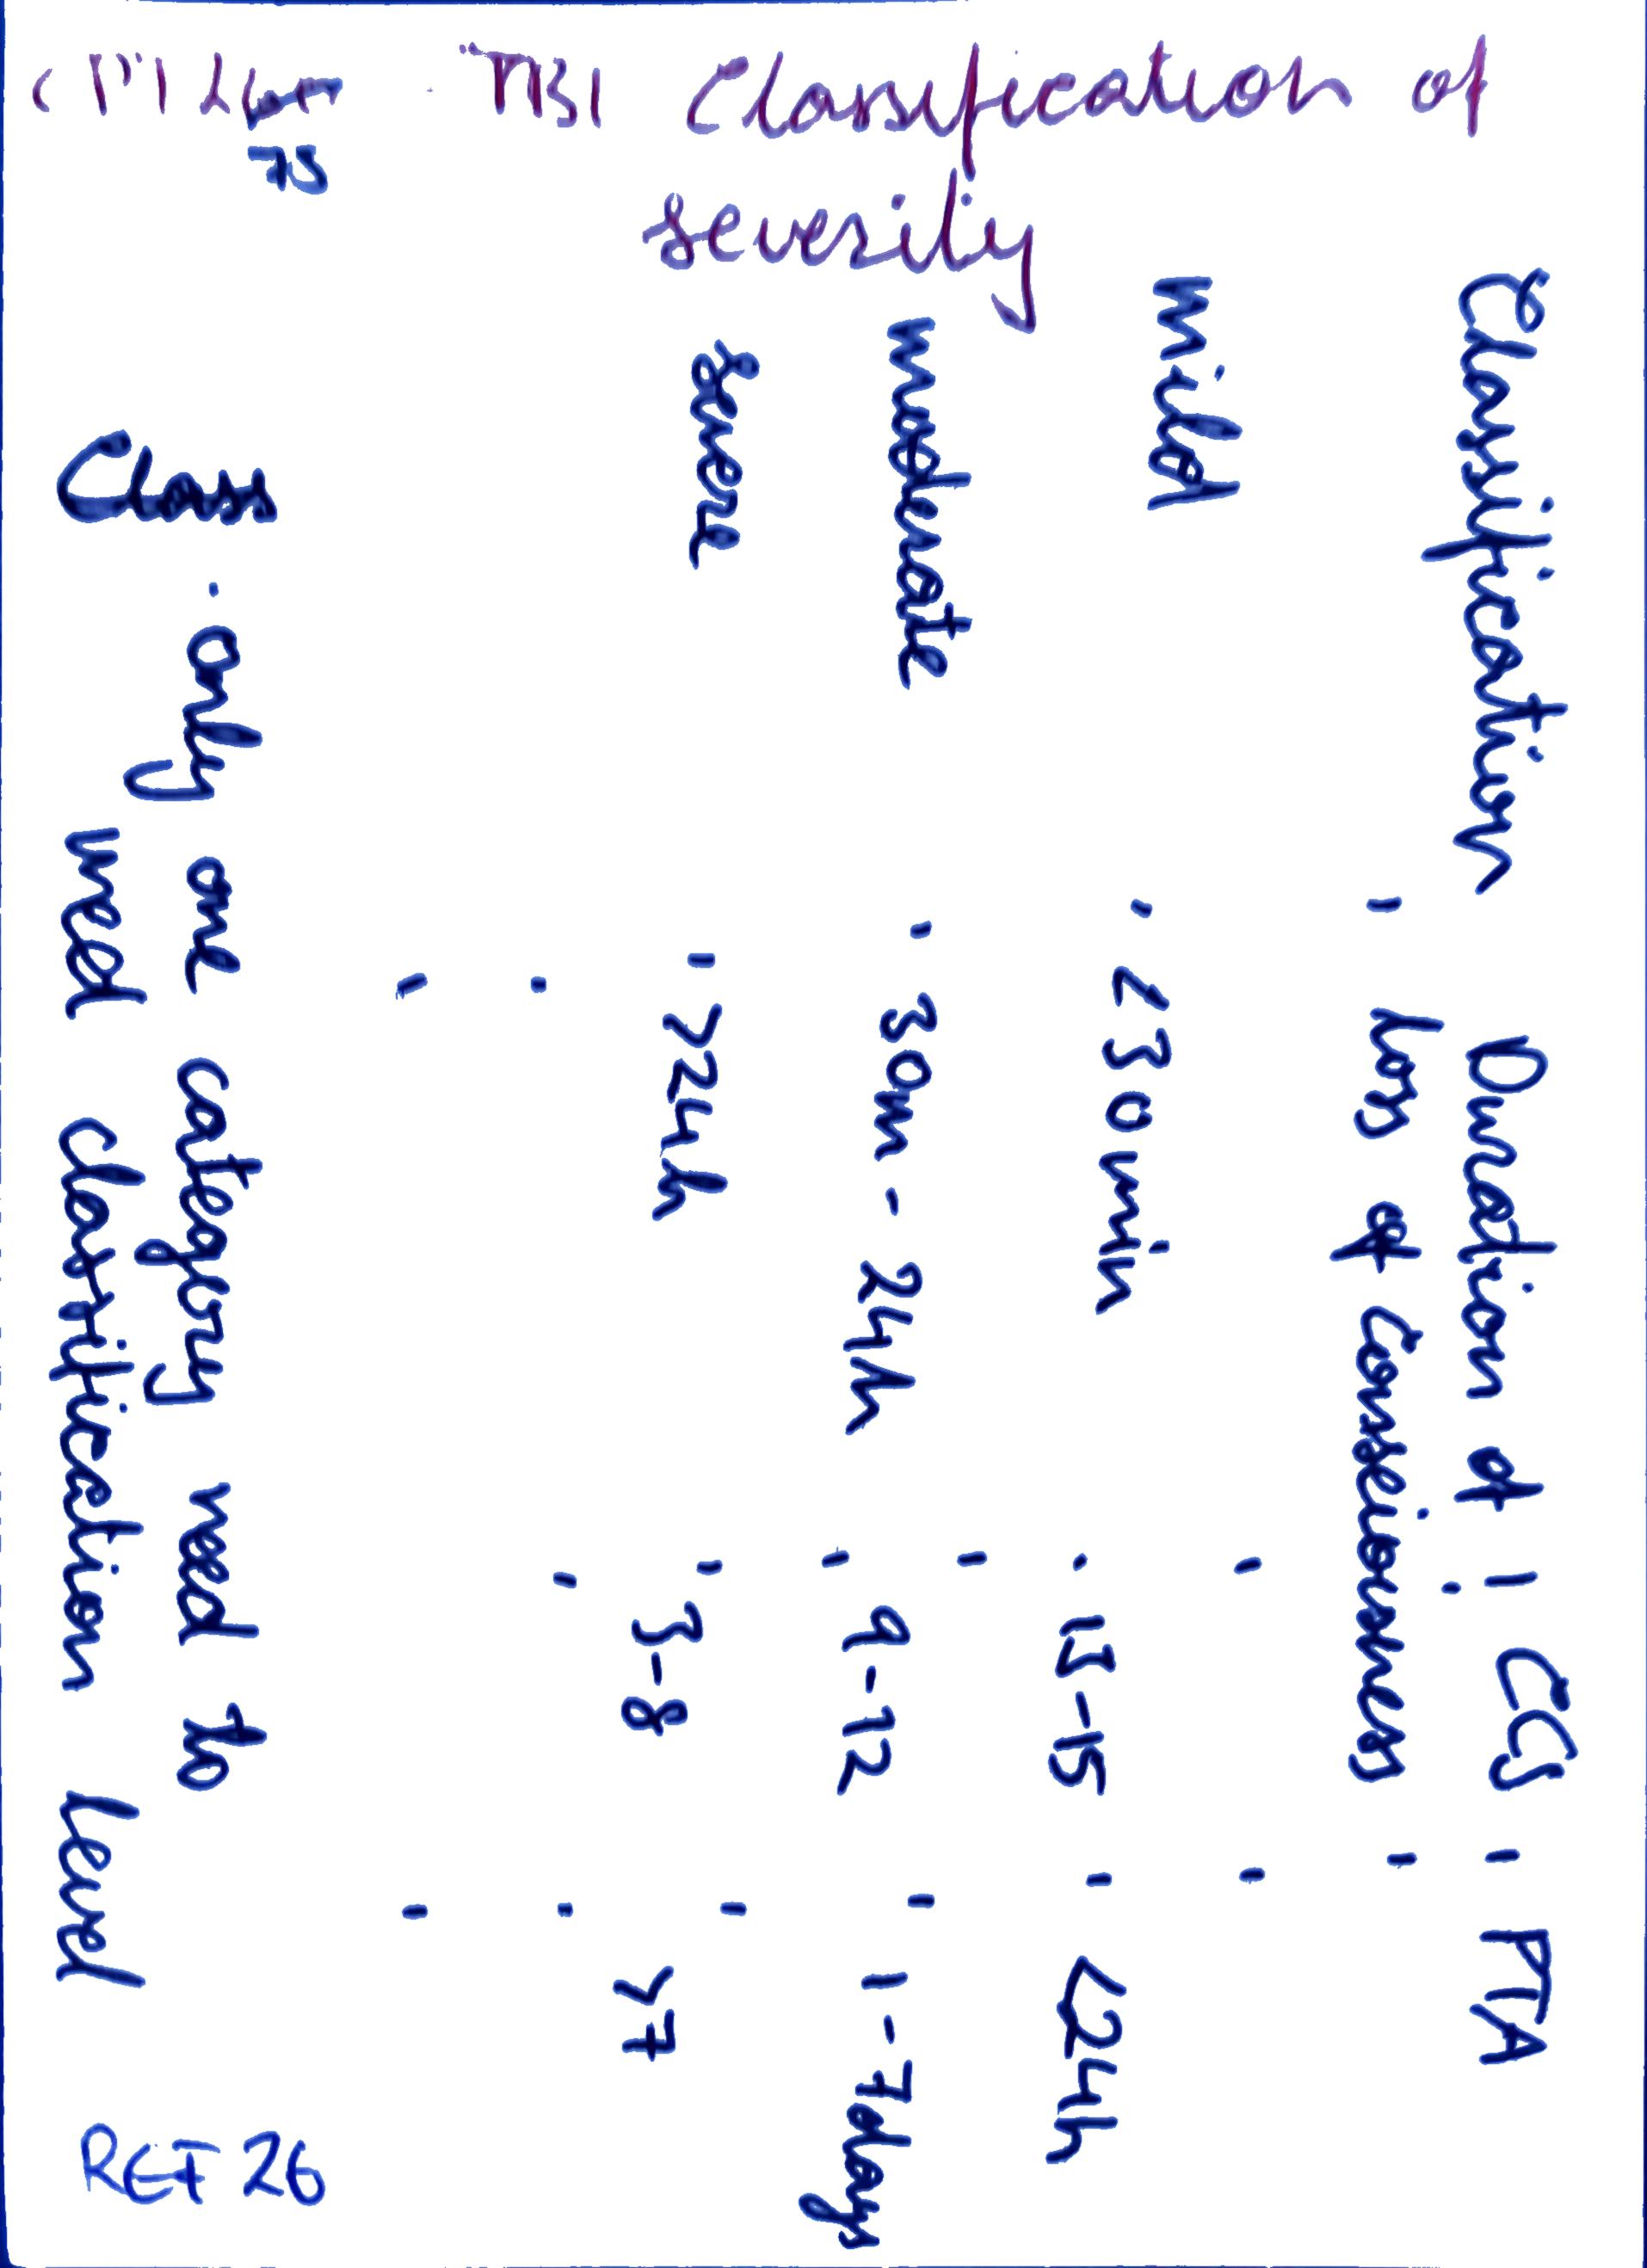 TBI Classification of
severity
75
Classification Duration of | GCS - PTA
- Loss of Consciousness -
mild - <30min - 13-15 - <24h
moderate - 30m - 24h - 9-12 - 1-7days
severe - >24h - 3-8 - >7
Class - only one category need to
meed classification level
REF 26